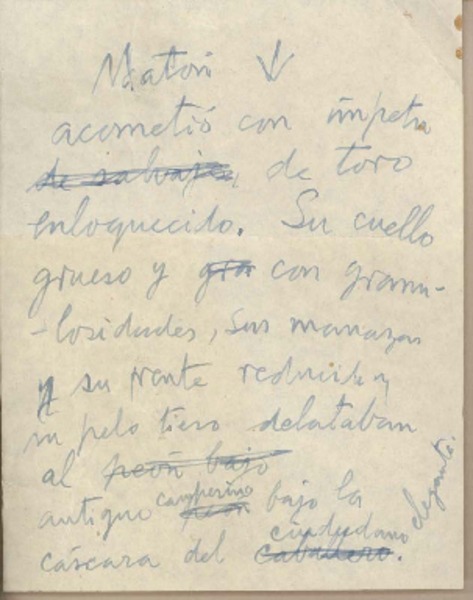 Matón ↓
acometió con ímpetu
de salvaje, de toro
enloquecido. Su cuello
grueso y gra con granu-
-losidades, sus manazas
y su frente reducida y
su pelo tieso delataban
al peón bajo
antiguo campesino peón bajo la
cáscara del ciudadano caballero. elegante.